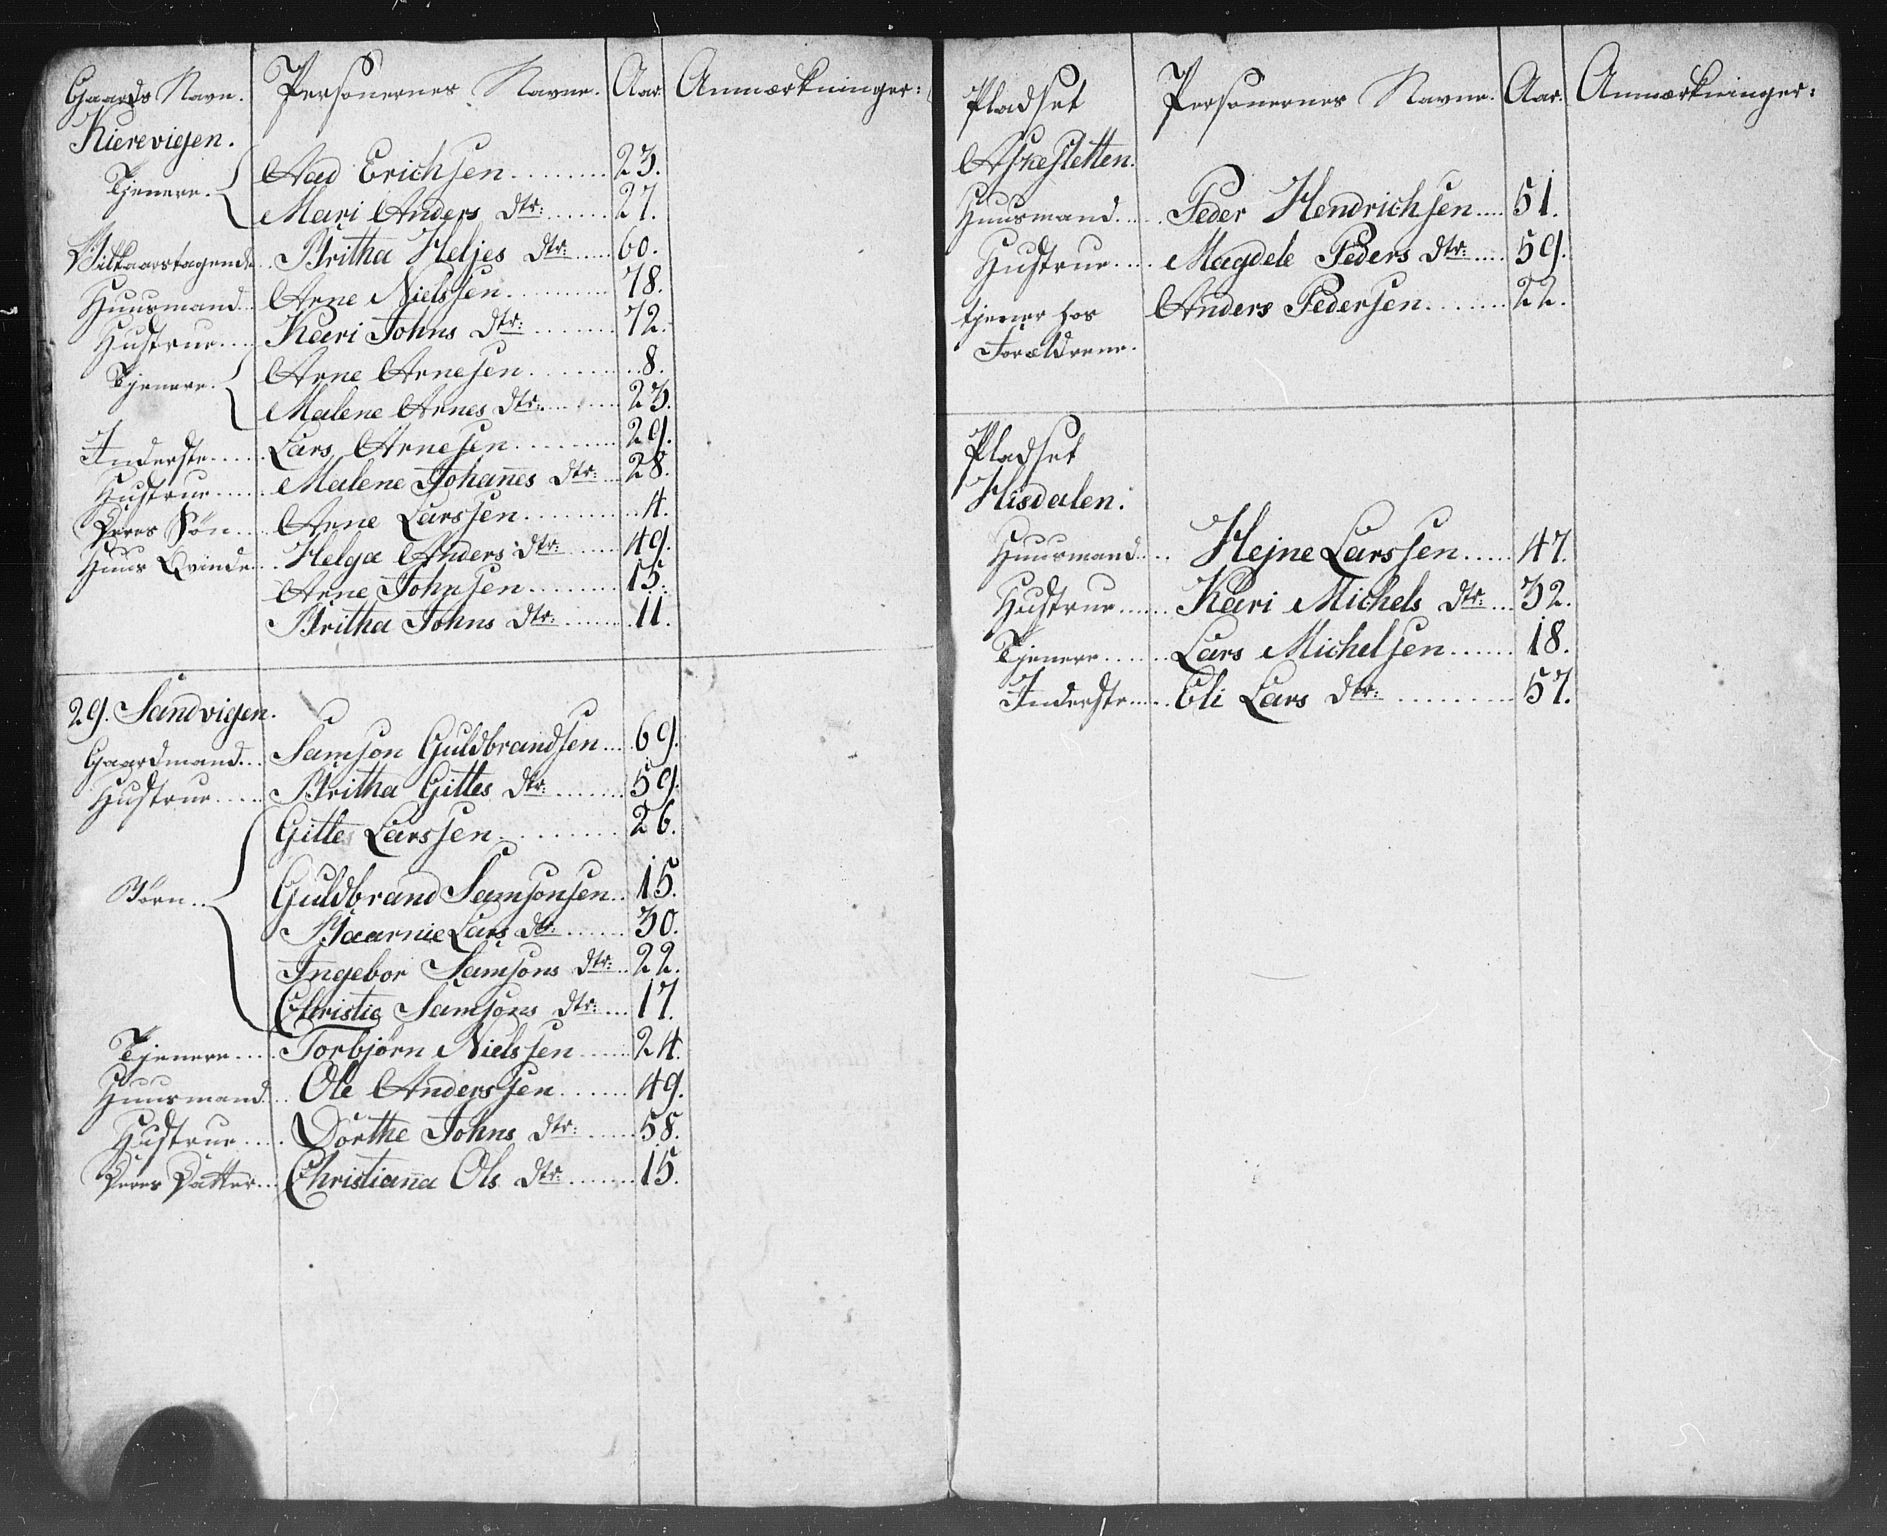 Gaards Navn. Personernes Navne. Aar. Anmærkninger:
Kierevigen.
Tjenere. Aad Erichsen 23.
Mari Anders Dtr: 27.
Vilkaarstagende Britha Heljes Dtr: 60.
Huusmand Arne Nielssen 78.
Hustrue Kari Johns Dtr: 72.
Tjenere. Arne Arnesen 8.
Malene Arnes Dtr: 23.
Inderste Lars Arnesen 29.
Hustrue Malene Johannes Dtr: 28.
Deres Søn Arne Larssen 4.
Huus Qvinde Helga Anders Dtr: 49.
Arne Johnsen 15.
Britha Johns Dtr: 11.
29. Sandvigen.
Gaardmand Samson Guldbrandsen 69.
Hustrue Britha Gittes Dtr: 59.
Gitte Larssen 26.
Børn Guldbrand Samsonsen 15.
Baarnie Lars Dtr: 30.
Ingebor Samsons Dtr: 22.
Christie Samsons Dtr: 17.
Tjenere Torbjørn Nielssen 24.
Huusmand Ole Anderssen 49.
Hustrue Dorthe Johns Dtr: 58.
Deres Datter Christianna Ols Dtr: 15.
Pladset Personernes Navne. Aar. Anmærkninger:
Askesletten.
Huusmand Peder Hendrichsen 51.
Hustrue Magdele Peders Dtr: 59.
tjener hos Anders Pedersen 22.
Forældrene.
Pladset
Hisdalen:
Huusmand Hejne Larssen 47.
Hustrue Kari Michels Dtr: 32.
Tjenere Lars Michelsen 18.
Inderste Eli Lars Dtr: 57.